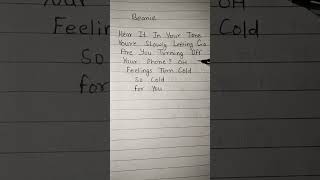 Beanie
Hear It In Your Tone
You're Slowly Letting Go
Are You Turning Off
Your Phone? OH
Feelings Turn Cold
So Cold
For You